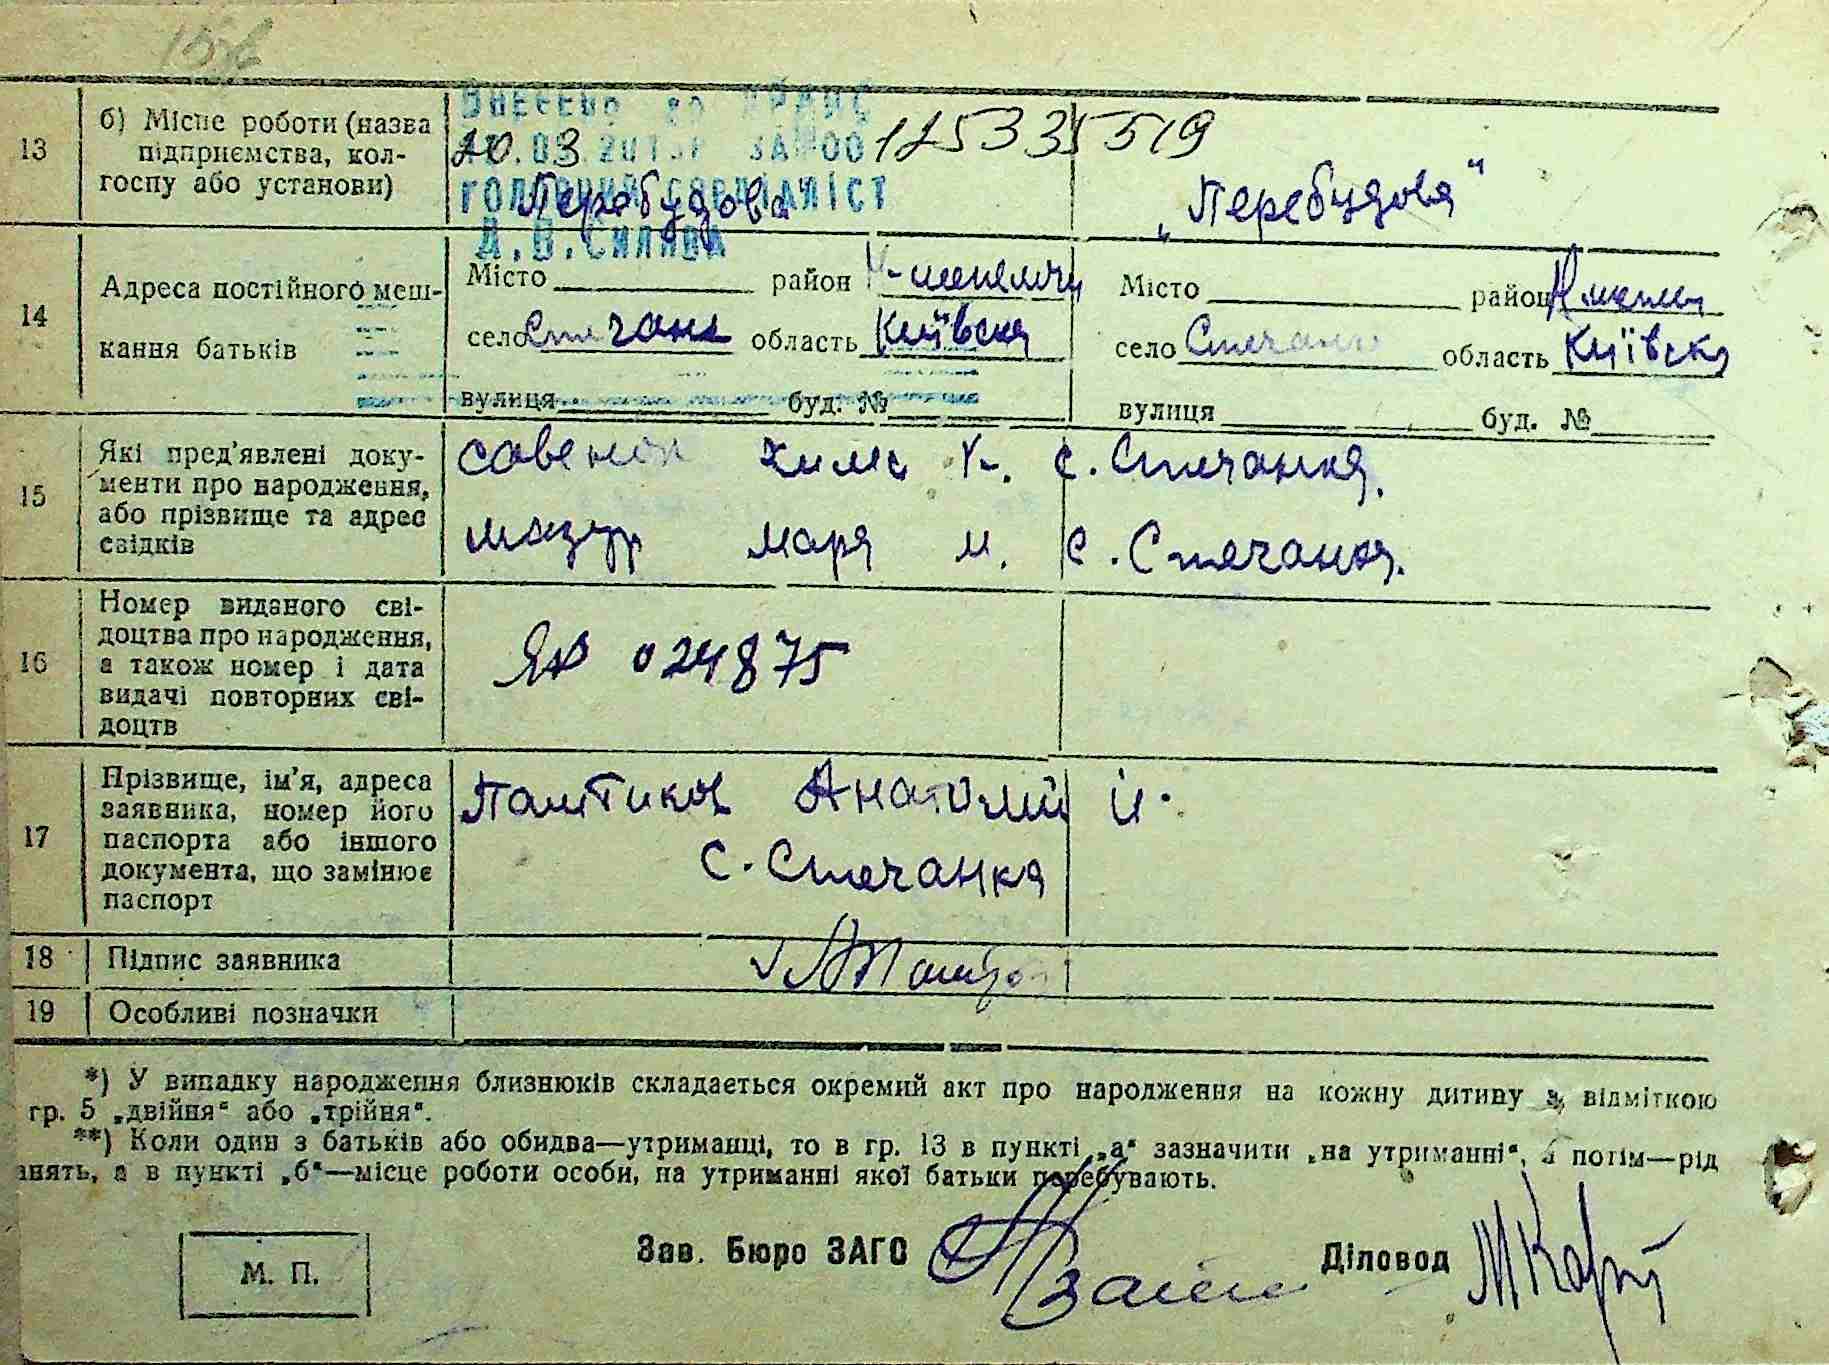 13 б) Місце роботи (назва підприємства, колгоспу або установи)
Внесено до ДРАЦС
20.03 за №00 125335519
головний спеціаліст
Перебудова „Перебудова“
14 Адреса постійного мешкання батьків
Місто район
село Стечанка область Київська
вулиця буд. №
Місто район
село Стечанка область Київська
вулиця буд. №
15 Які пред'явлені документи про народження, або прізвище та адрес свідків
Савенок с. Стечанка.
Мазур Марія М. с. Стечанка.
16 Номер виданого свідоцтва про народження, а також номер і дата видачі повторних свідоцтв
024875
17 Прізвище, ім'я, адреса заявника, номер його паспорта або іншого документа, що замінює паспорт
Анатолий И.
с. Стечанка
18 Підпис заявника
19 Особливі позначки
*) У випадку народження близнюків складається окремий акт про народження на кожну дитину з відміткою
гр. 5 „двійня“ або „трійня“.
**) Коли один з батьків або обидва—утриманці, то в гр. 13 в пункті „а“ зазначити „на утриманні“, а потім—рід
занять, а в пункті „б“—місце роботи особи, на утриманні якої батьки перебувають.
М. П.
Зав. Бюро ЗАГС
Діловод